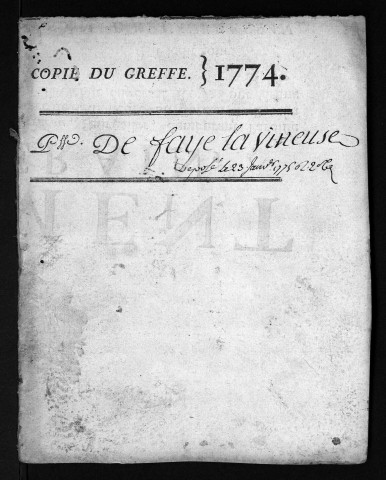 COPIE DU GREFFE. } 1774.
Psse. De faye la vineuse
Deposé le 23 Janv. 1775